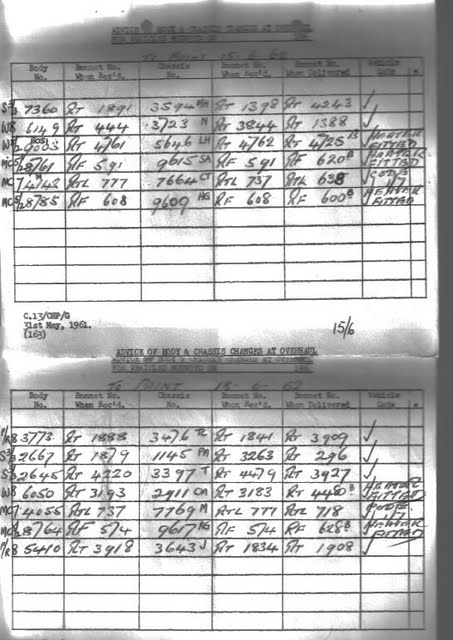 ADVICE OF BODY & CHASSIS CHANGES AT OVERHAUL
FOR VEHICLES MOUNTED ON 196
To PAINT 15-6-62
Body No. Bonnet No. When Rec'd. Chassis No. Bonnet No. When Rec'd. Bonnet No. When Delivered Vehicle Code *
S3/3 7360 RT 1891 3594 MH RT 1398 RT 4243 ✓
W8 6149 RT 444 3723 N RT 3844 RT 1388 ✓
RT 4761 5646 LH RT 4762 RT 4725 B HEATER FITTED
MC5/2 8761 RF 591 9615 SA RF 591 RF 620 B HEATER FITTED
MC7 4142 RTL 777 7664 CT RTL 737 RTL 638 ✓
MC5/2 8785 RF 608 9609 HG RF 608 RF 600 B HEATER FITTED
C.13/CHP/G
31st May, 1961.
(163)
15/6
ADVICE OF BODY & CHASSIS CHANGES AT OVERHAUL
ADVICE OF BODY & CHASSIS CHANGES AT OVERHAUL
FOR VEHICLES MOUNTED ON 196
To PAINT 15-6-62
Body No. Bonnet No. When Rec'd. Chassis No. Bonnet No. When Rec'd. Bonnet No. When Delivered Vehicle Code *
P/R8 3773 RT 1888 3476 TC RT 1841 RT 3909 ✓
S3/3 2667 RT 1879 1145 PA RT 3263 RT 296 ✓
S3/3 2645 RT 4220 3397 T RT 4479 RT 3927 ✓
W8 6050 RT 3193 2911 CM RT 3183 RT 4460 B HEATER FITTED
MC7 4055 RTL 737 7769 M RTL 771 RTL 718 ✓
MC5/2 8764 RF 514 9617 HG RF 514 RF 628 B HEATER FITTED
P/R8 5410 RT 3918 3643 J RT 1834 RT 1908 ✓